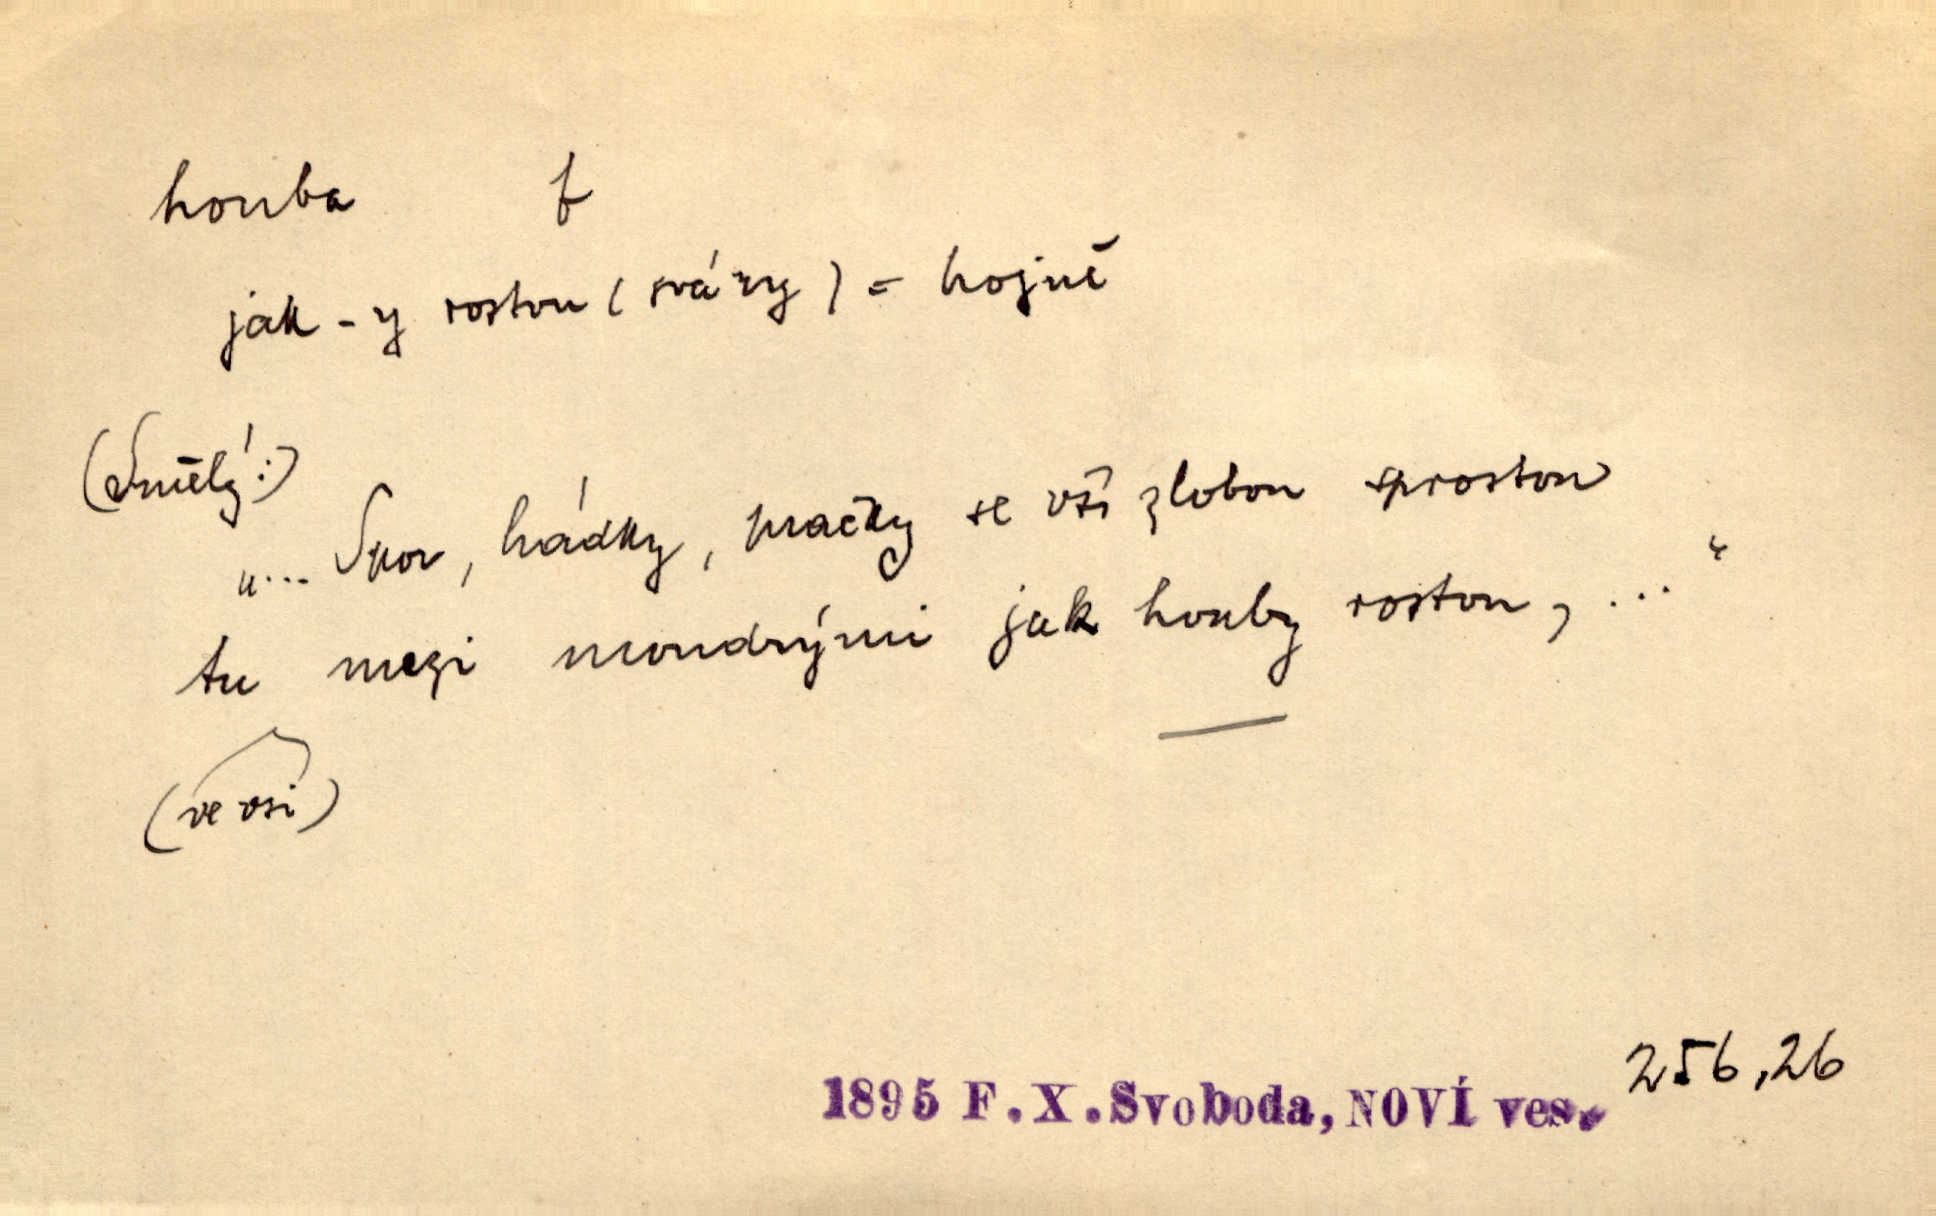 houba f
jak -y rostou (sváry) = hojně
(Smělý:)
„... Spor, hádky, pračky se vší zlobou sprostou
tu mezi moudrými jak houby rostou, ..."
(ve vsi)
256,26
1895 F.X.Svoboda, NOVÍ ves.